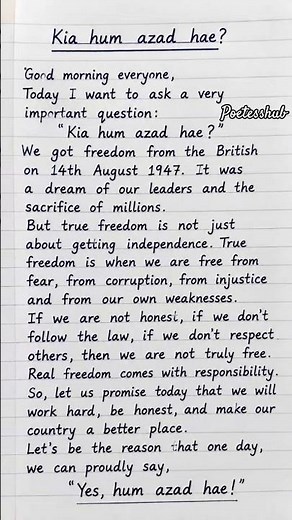 Kia hum azad hae?
Good morning everyone,
Today I want to ask a very
important question:
Poetesshub
"Kia hum azad hae?"
We got freedom from the British
on 14th August 1947. It was
a dream of our leaders and the
sacrifice of millions.
But true freedom is not just
about getting independence. True
freedom is when we are free from
fear, from corruption, from injustice
and from our own weaknesses.
If we are not honest, if we don't
follow the law, if we don't respect
others, then we are not truly free.
Real freedom comes with responsibility.
So, let us promise today that we will
work hard, be honest, and make our
country a better place.
Let's be the reason that one day,
we can proudly say,
"Yes, hum azad hae!"